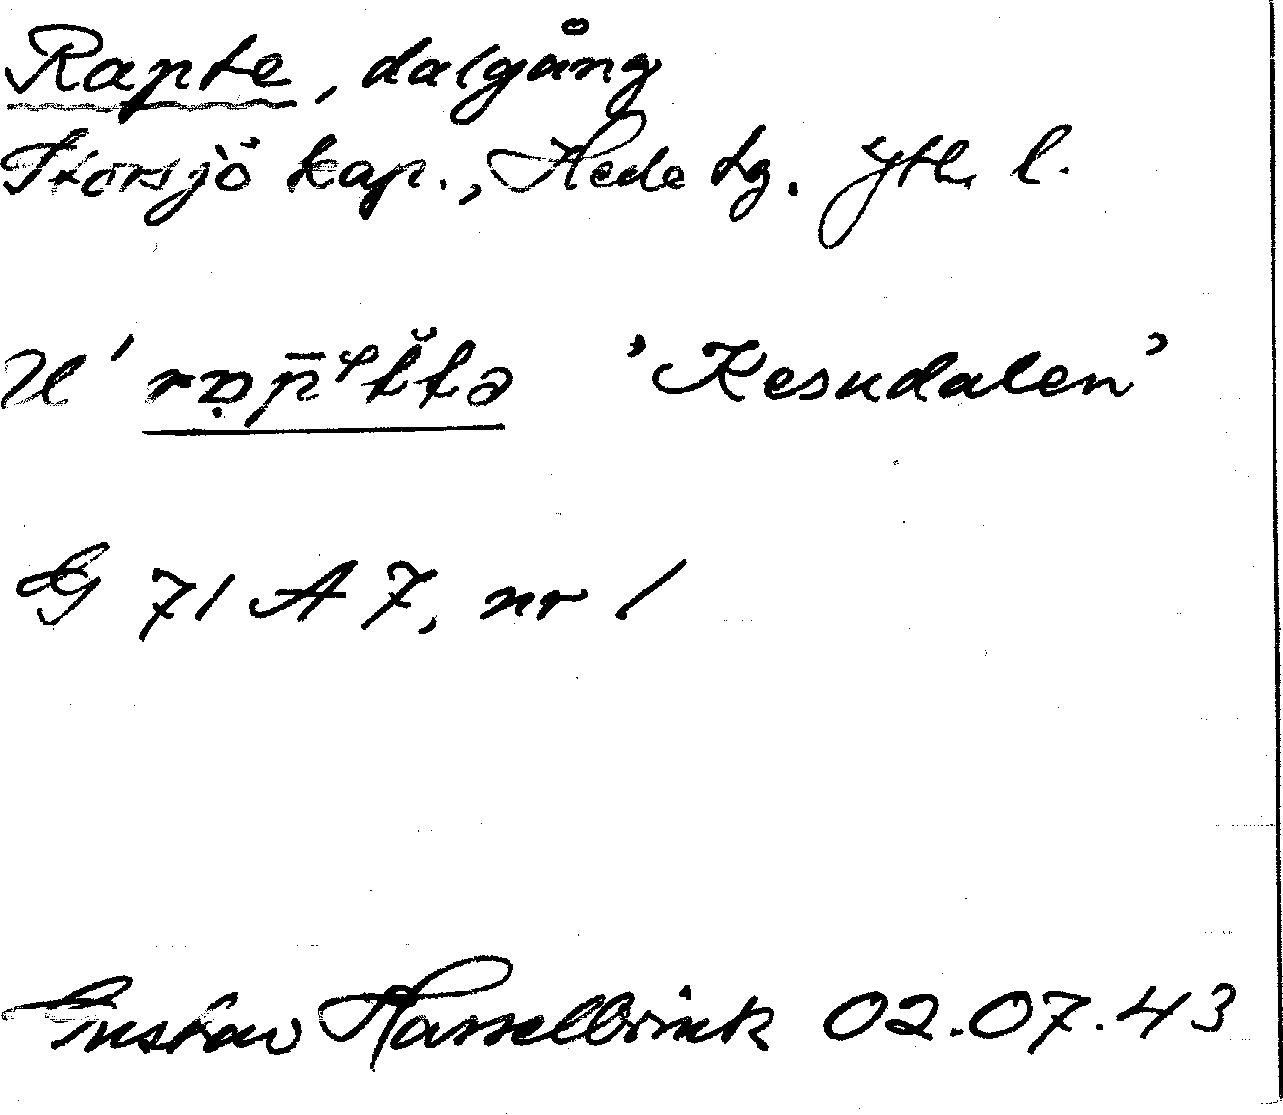 Rapte, dalgång
Storsjö kap., Hede tg. Jtl. l.
'Kesudalen'
G 71 A 7, nr 1
Gustav Hasselbrink 02.07.43